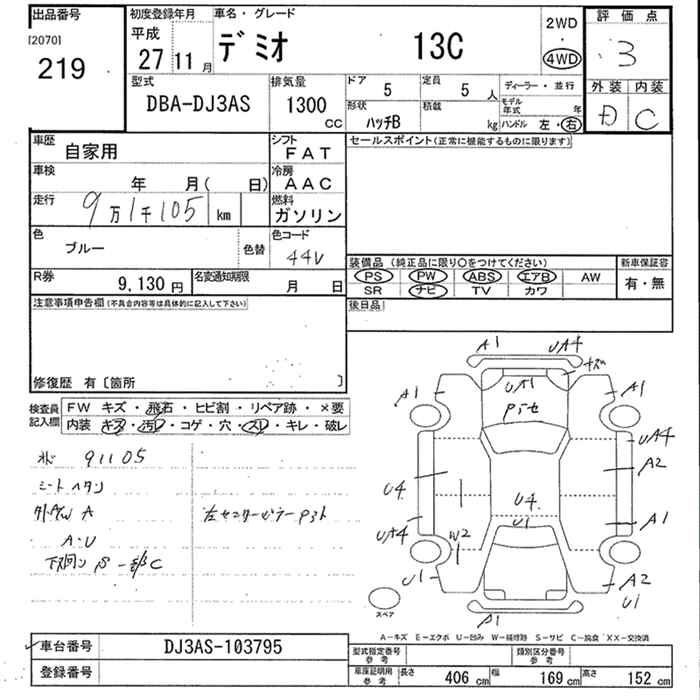 出品番号
[2070]
219
初度登録年月
平成
27 11 月
車名・グレード
デミオ 13C
2WD
・
4WD
評価点
3
外装 内装
D C
型式
DBA-DJ3AS
排気量
1300 CC
ドア 5
定員 5 人
形状 ハッチB
積載 kg
ディーラー・並行
モデル年式 年
ハンドル 左・右
車歴
自家用
シフト
FAT
車検
年 月( 日)
冷房
AAC
走行
9万1千105 km
燃料
ガソリン
色
ブルー
色替
色コード
44V
R券
9,130 円
名変通知期限
月 日
セールスポイント(正常に機能するものに限ります)
装備品(純正品に限り○をつけてください)
PS PW ABS エアB AW
SR ナビ TV カワ
新車保証書
有・無
後日品
注意事項申告欄(不具合内容等は具体的に記入して下さい)
修復歴 有〔箇所 〕
検査員記入欄
FW キズ・飛石・ヒビ割・リペア跡・×要
内装 キズ・汚レ・コゲ・穴・スレ・キレ・破レ
91105
シートヘタリ
外AW A
A・U
A1 UA4
キズ
A1 UA1 A1
UA4
A2
U4 U4
A1
U1
UA4 W2
U1 A2
U1
A1
スペア
A－キズ E－エクボ U－凹み W－補修跡 S－サビ C－腐食 XX－交換済
車台番号
DJ3AS-103795
登録番号
型式指定番号 参考
類別区分番号 参考
車庫証明用 参考
長さ 406 cm 幅 169 cm 高さ 152 cm